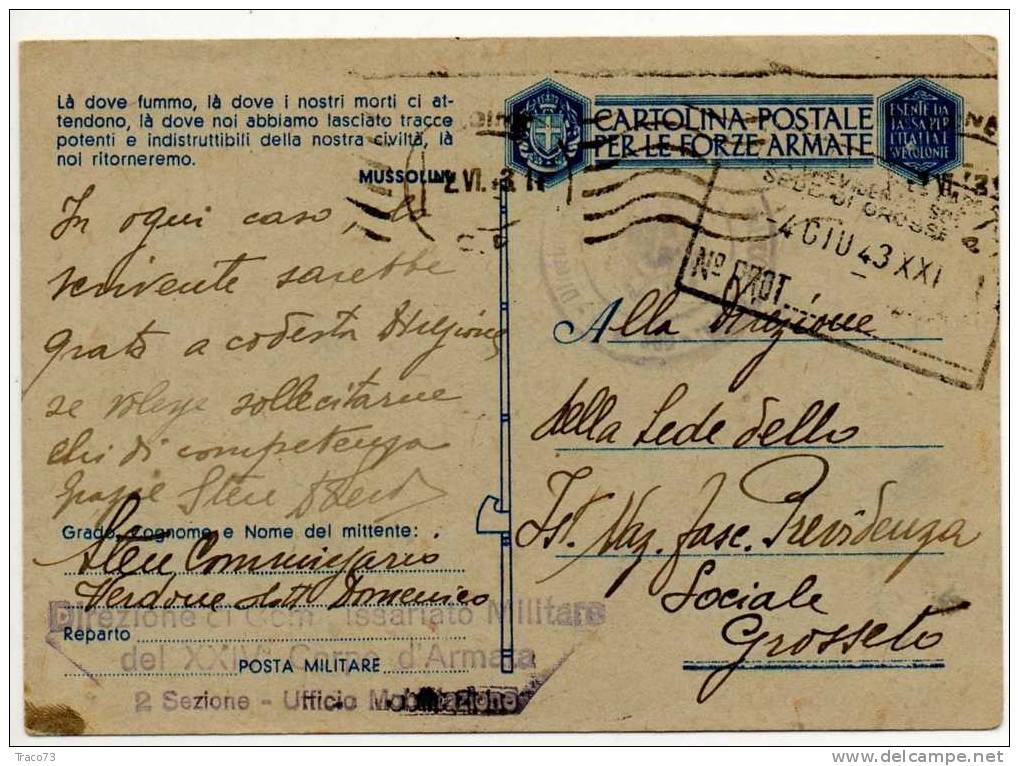 Là dove fummo, là dove i nostri morti ci at-
tendono, là dove noi abbiamo lasciato tracce
potenti e indistruttibili della nostra civiltà, là
noi ritorneremo.
MUSSOLINI
CARTOLINA POSTALE
PER LE FORZE ARMATE
ESENTE DA
TASSA PER
L'ITALIA E
SVE COLONIE
SEDE DI GROSSE
-4 GIU 43 XXI
Nº PROT.
In ogni caso, lo
scrivente sarebbe
grato a codesta Direzione
se volesse sollecitarne
chi di competenza
Grazie
Grado, Cognome e Nome del mittente:
Commissario
Verdone dott. Domenico
Reparto
POSTA MILITARE
Direzione di Commissariato Militare
del XXIV° Corpo d'Armata
2 Sezione - Ufficio Mobilitazione
Alla Direzione
della Sede dello
Ist. Naz. Fasc. Previdenza
Sociale
Grosseto
Traco73
www.delcampe.net